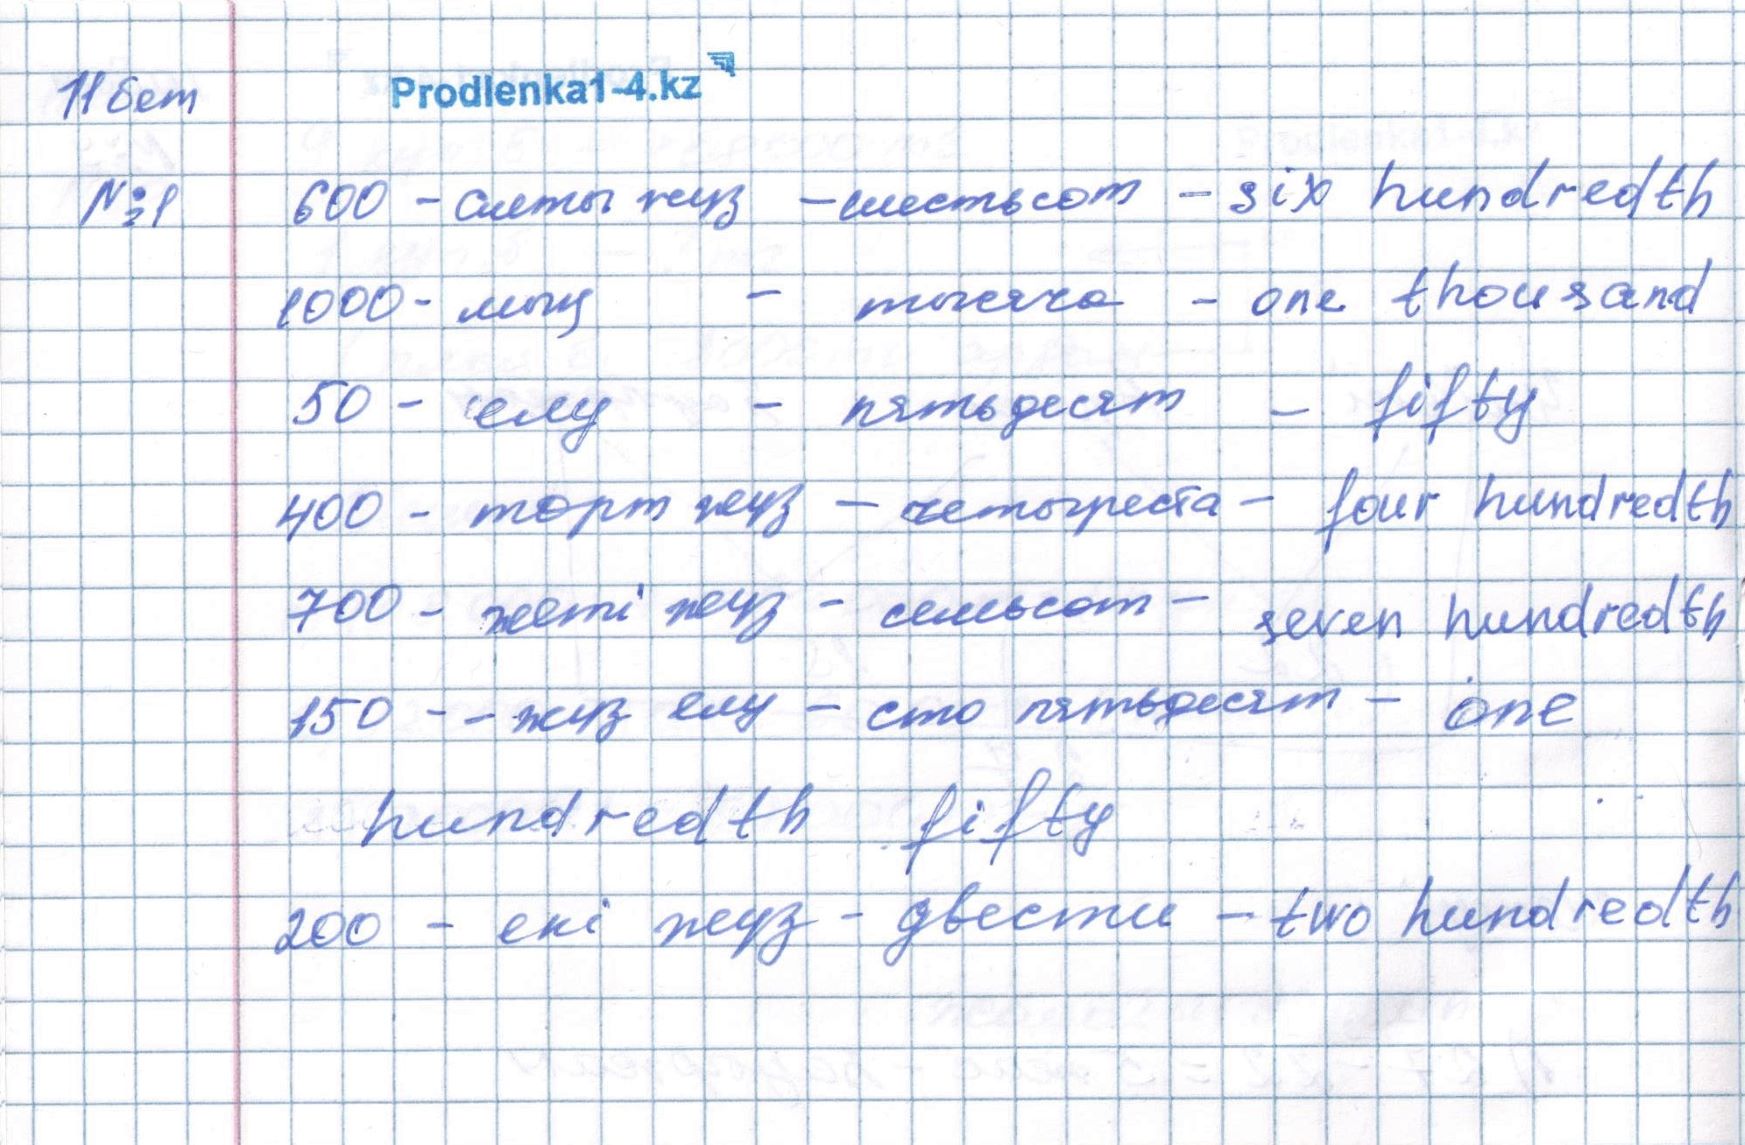 11 бет
Prodlenka1-4.kz
№1 600 - алты жүз - шестьсот - six hundredth
1000 - мың - тысяча - one thousand
50 - елу - пятьдесят - fifty
400 - торт жуз - четыреста - four hundredth
700 - жеті жуз - семьсот - seven hundredth
150 - - жуз елу - сто пятьдесят - one
hundredth fifty
200 - екі жуз - двести - two hundredth